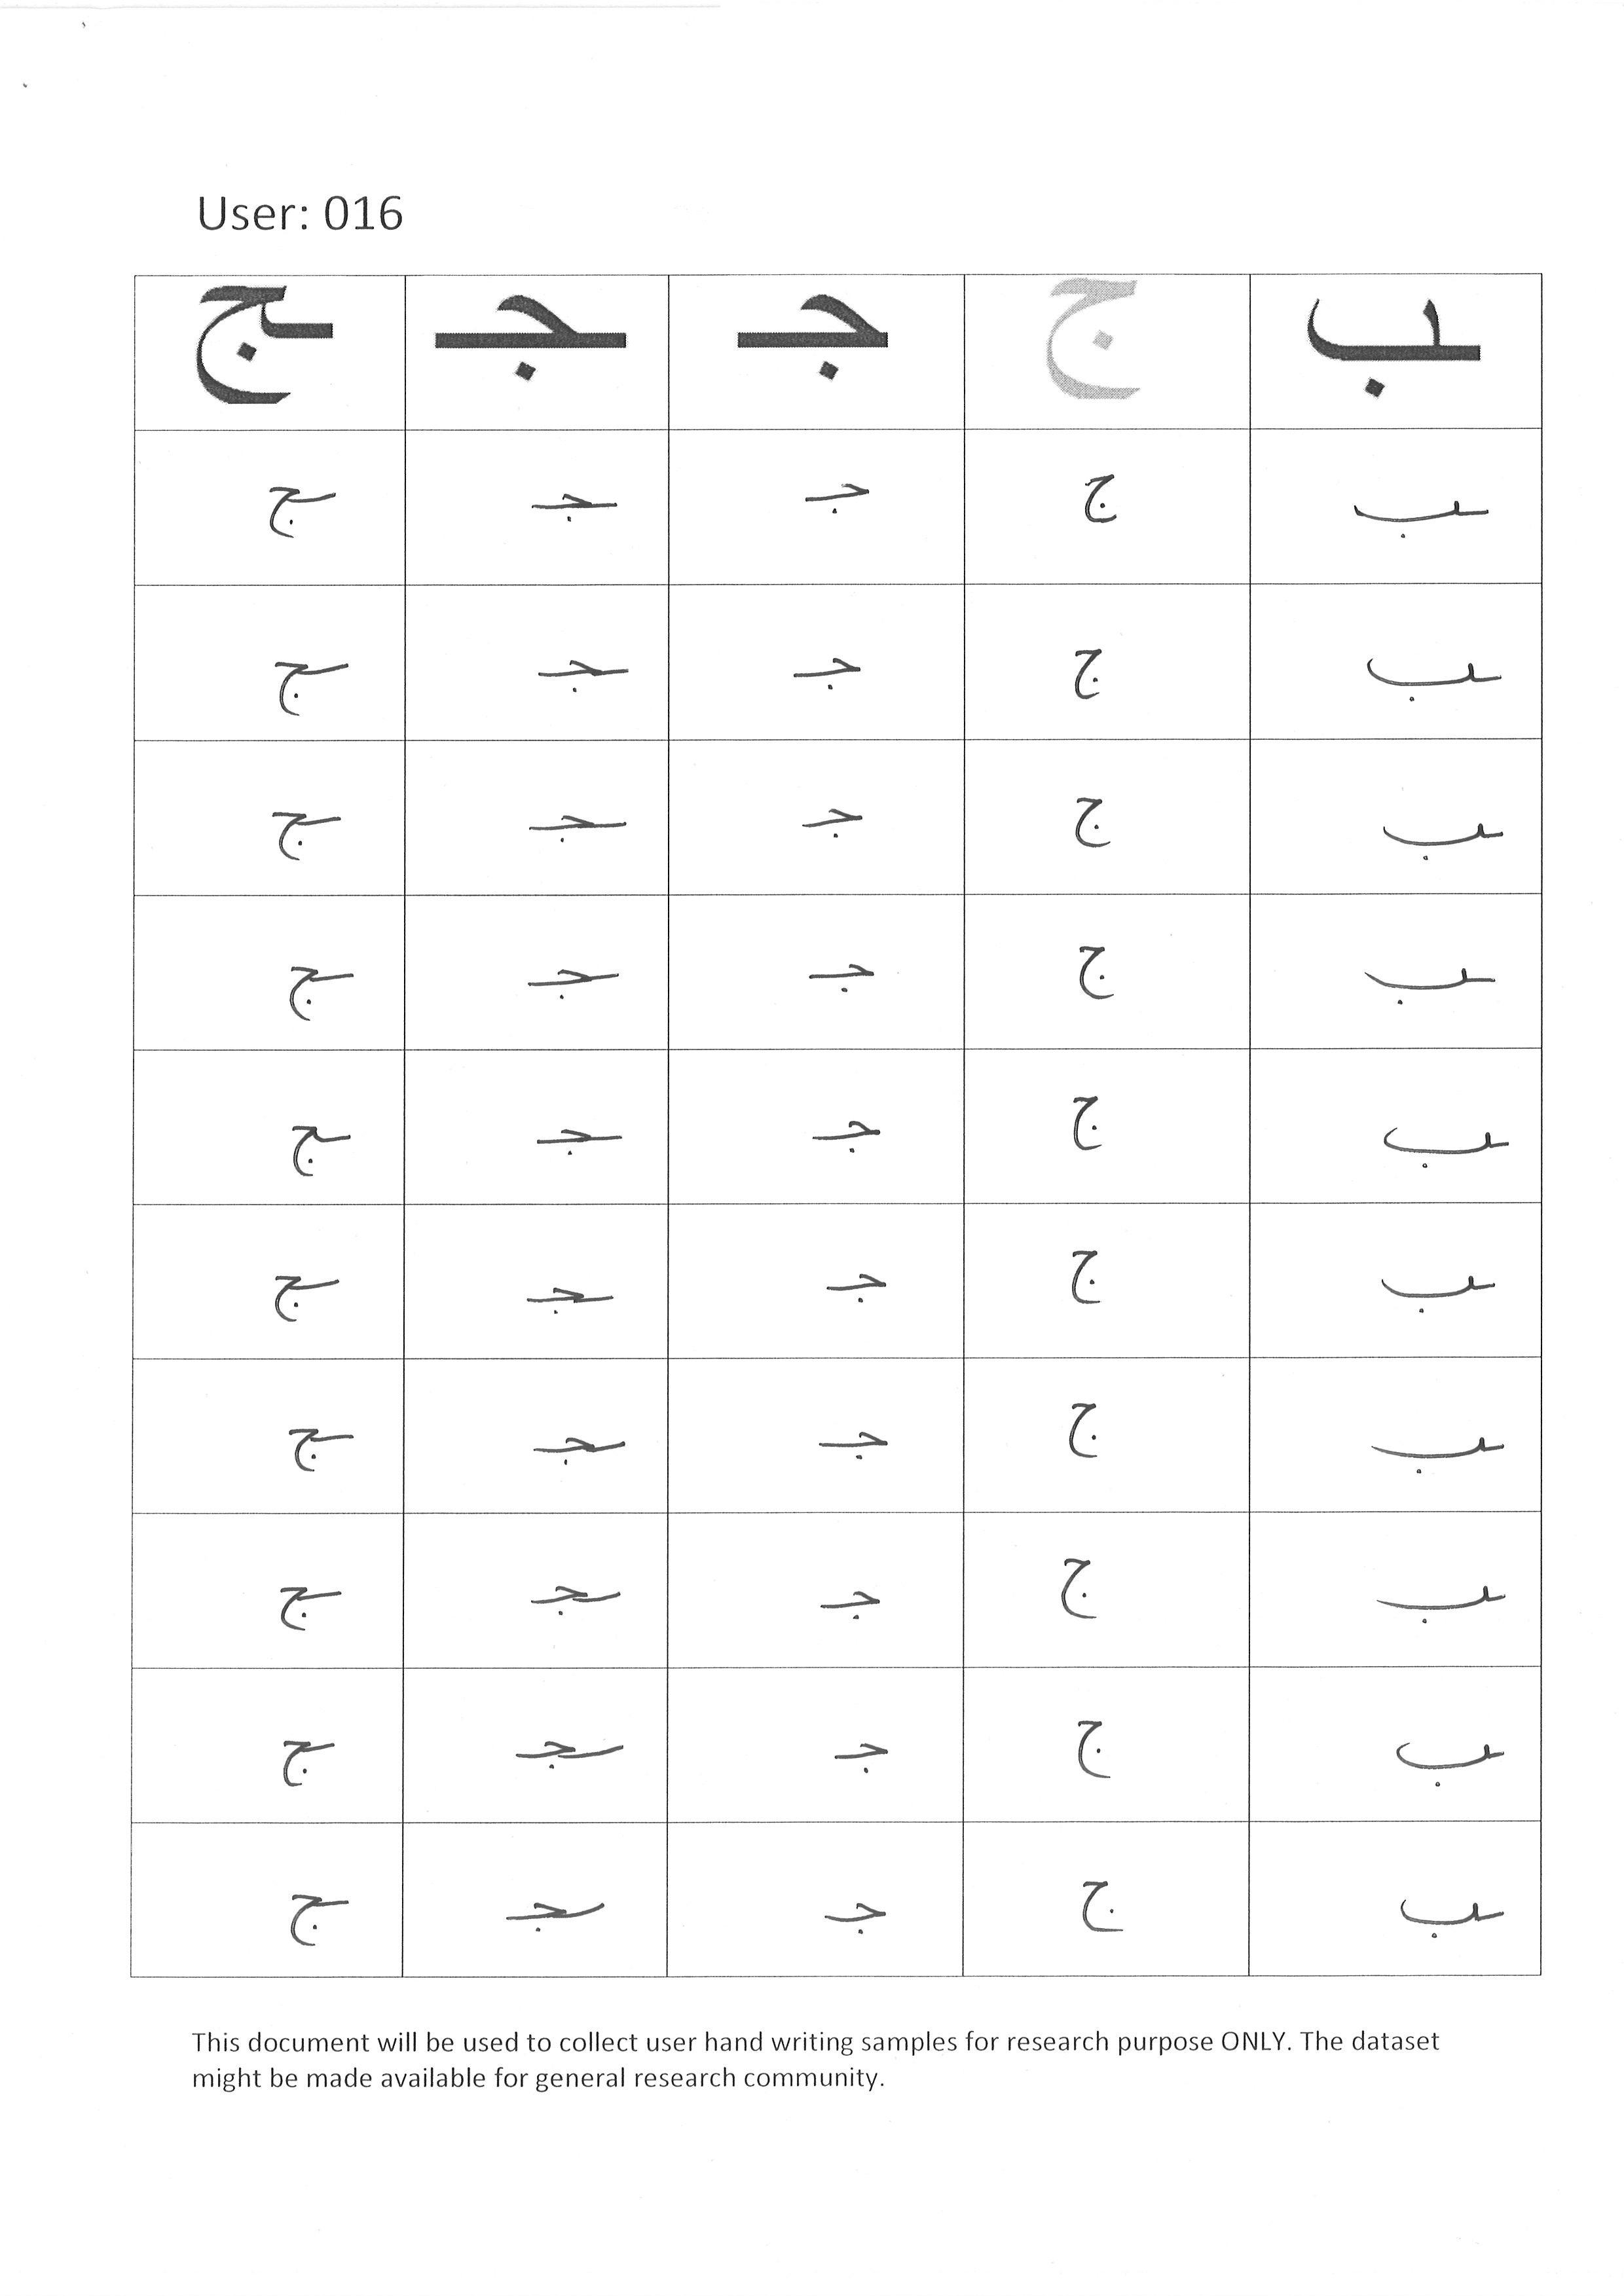 User: 016
ـب ج جـ ـجـ ـج
ـب ج جـ ـجـ ـج
ـب ج جـ ـجـ ـج
ـب ج جـ ـجـ ـج
ـب ج جـ ـجـ ـج
ـب ج جـ ـجـ ـج
ـب ج جـ ـجـ ـج
ـب ج جـ ـجـ ـج
ـب ج جـ ـجـ ـج
ـب ج جـ ـجـ ـج
ـب ج جـ ـجـ ـج
This document will be used to collect user hand writing samples for research purpose ONLY. The dataset
might be made available for general research community.